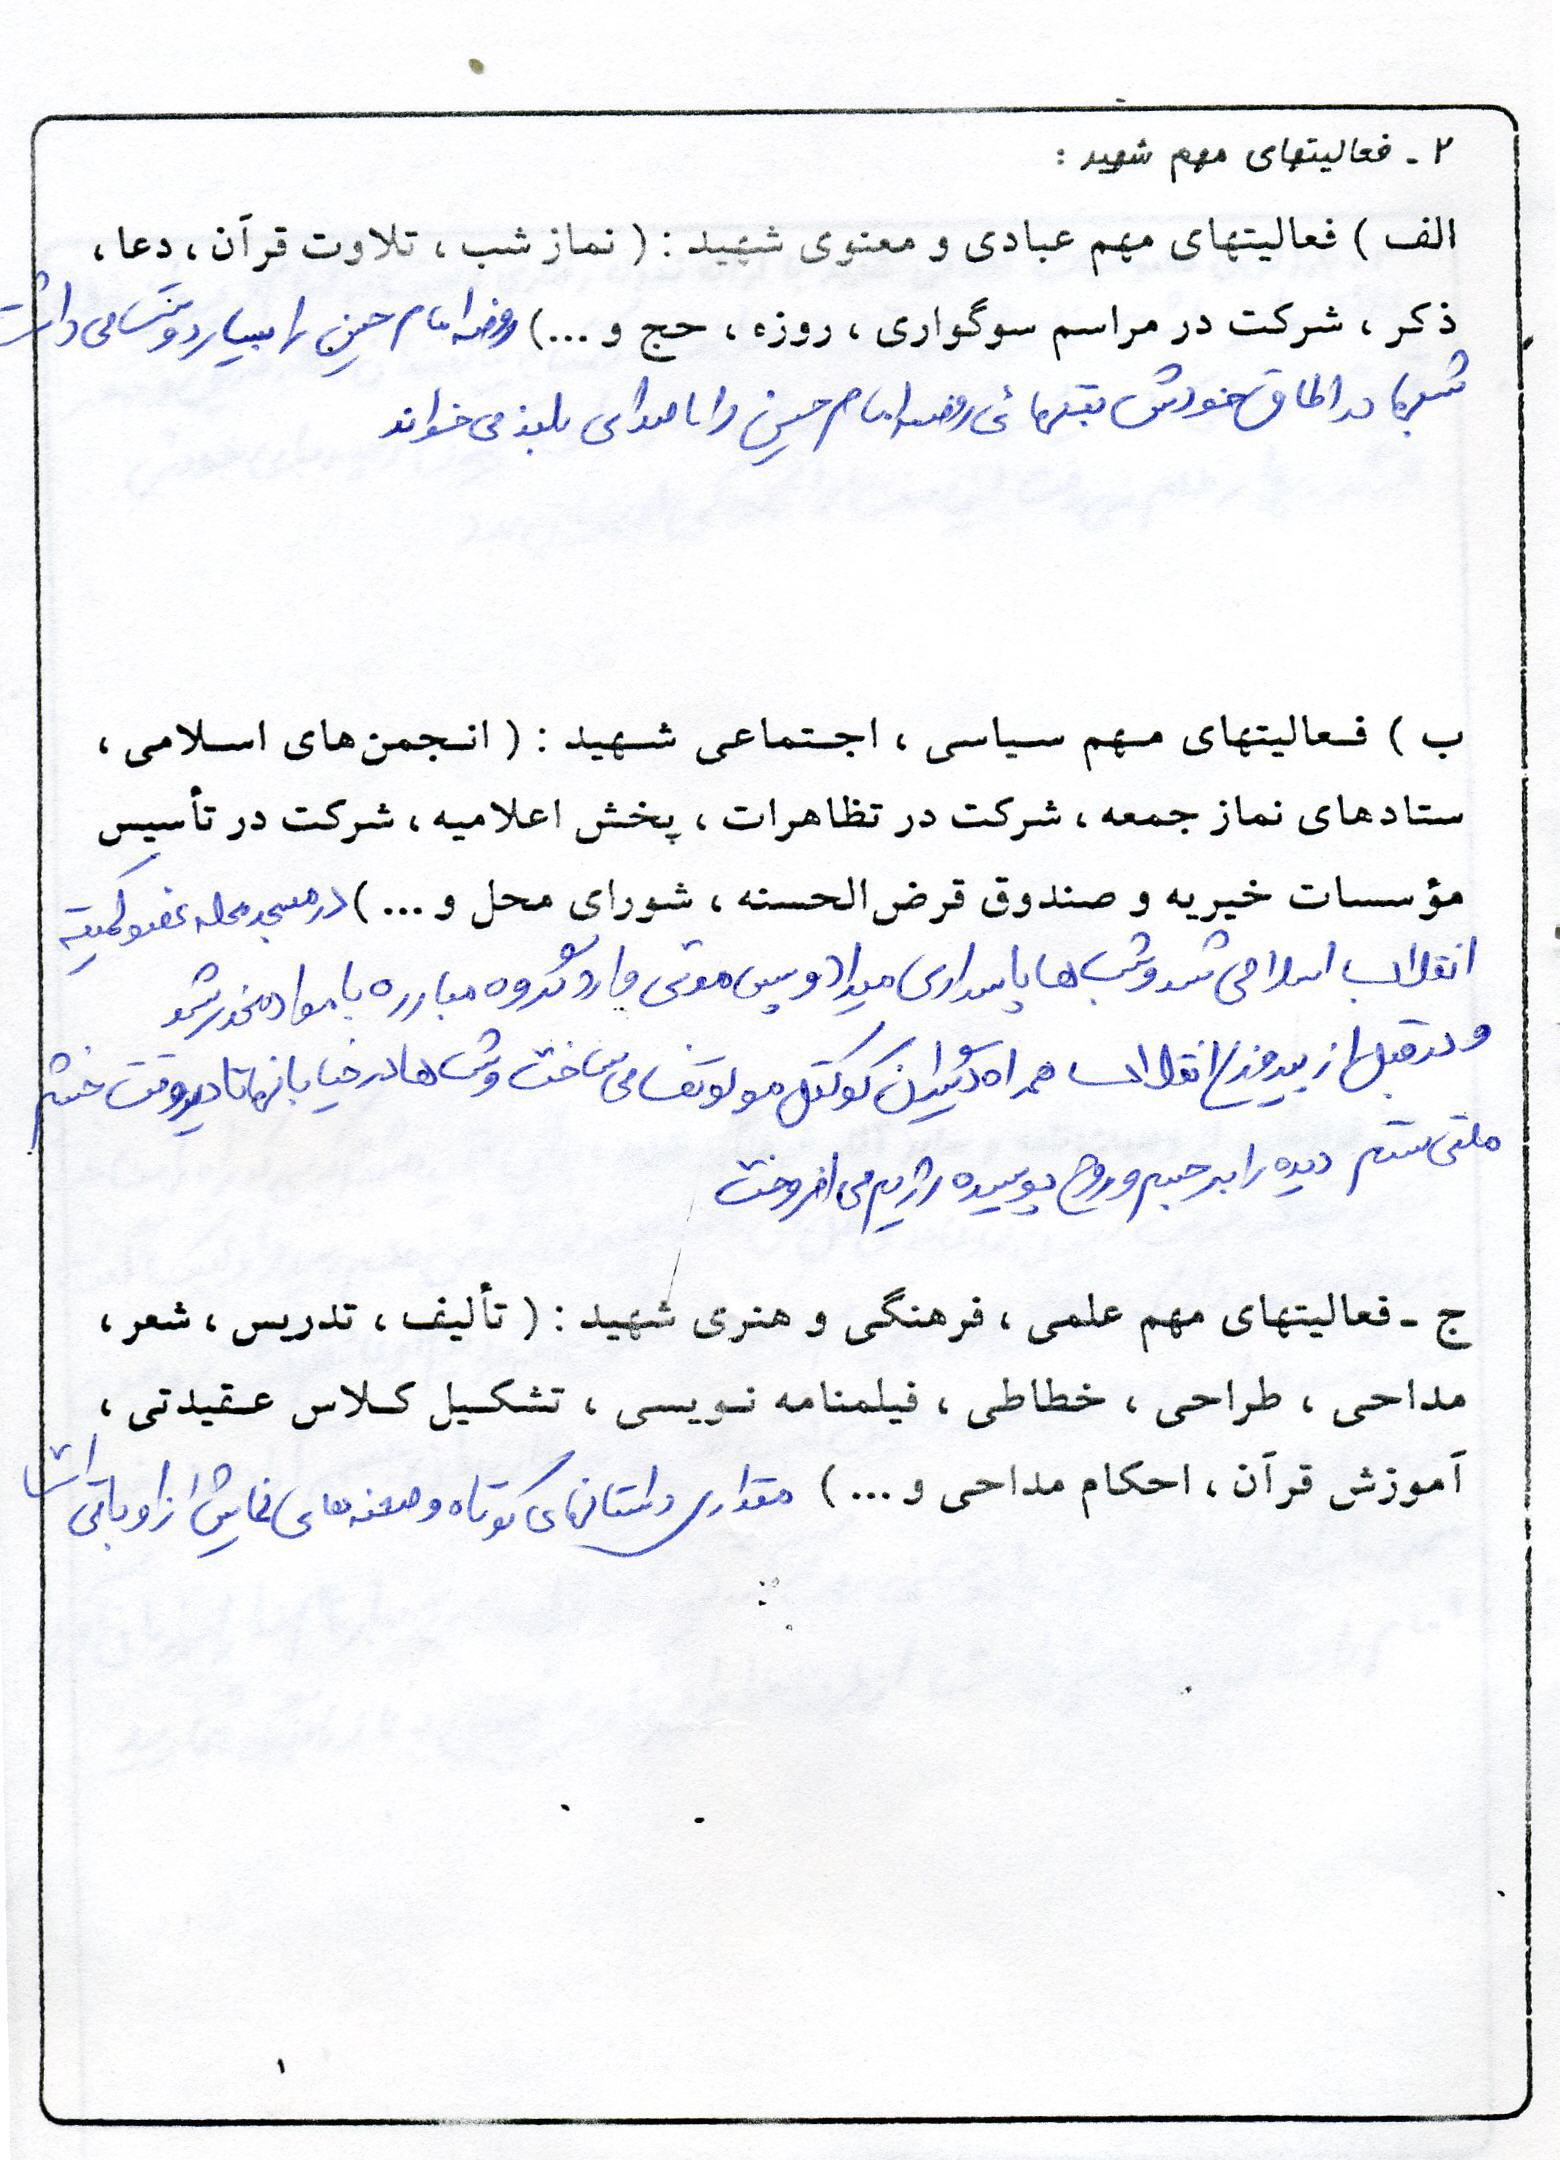 ۲ - فعالیتهای مهم شهید :
الف ) فعالیتهای مهم عبادی و معنوی شهید : ( نماز شب ، تلاوت قرآن ، دعا ،
ذکر ، شرکت در مراسم سوگواری ، روزه ، حج و ...) روضه امام حسین را بسیار دوست می داشت
شبها در اطاق خودش بتنهائی روضه امام حسین را با صدای بلند می خواند
ب ) فعالیتهای مهم سیاسی ، اجتماعی شهید : ( انجمن‌های اسلامی ،
ستادهای نماز جمعه ، شرکت در تظاهرات ، پخش اعلامیه ، شرکت در تأسیس
مؤسسات خیریه و صندوق قرض‌الحسنه ، شورای محل و ... ) در مسجد محله عضو کمیته
انقلاب اسلامی شد و شب ها پاسداری میداد و پس مدتی وارد گروه مبارزه با مواد مخدر شد
و در قبل از پیروزی انقلاب همراه دیگران کوکتل مولوتف می ساخت و شب ها در خیابانها تا دیروقت خشم
ملتی ستم دیده را بر جسم و روح پوسیده رژیم می افروخت
ج - فعالیتهای مهم علمی ، فرهنگی و هنری شهید : ( تألیف ، تدریس ، شعر ،
مداحی ، طراحی ، خطاطی ، فیلمنامه نویسی ، تشکیل کلاس عقیدتی ،
آموزش قرآن ، احکام مداحی و ... ) مقداری داستانهای کوتاه و صحنه های نمایش از او باقی است
۱